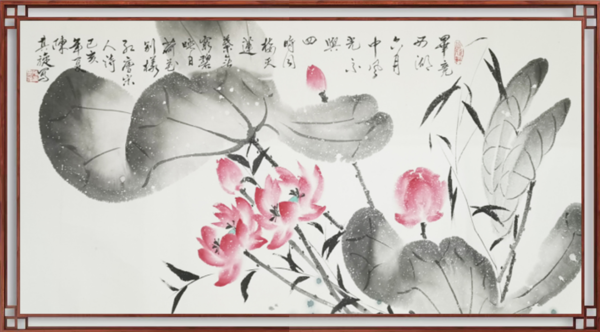 畢竟
西湖
六月
中風
光不
與
四
時同
接天
蓮
葉無
窮碧
映日
荷花
別樣
紅唐宋
人詩
己亥
年夏
陳
寫